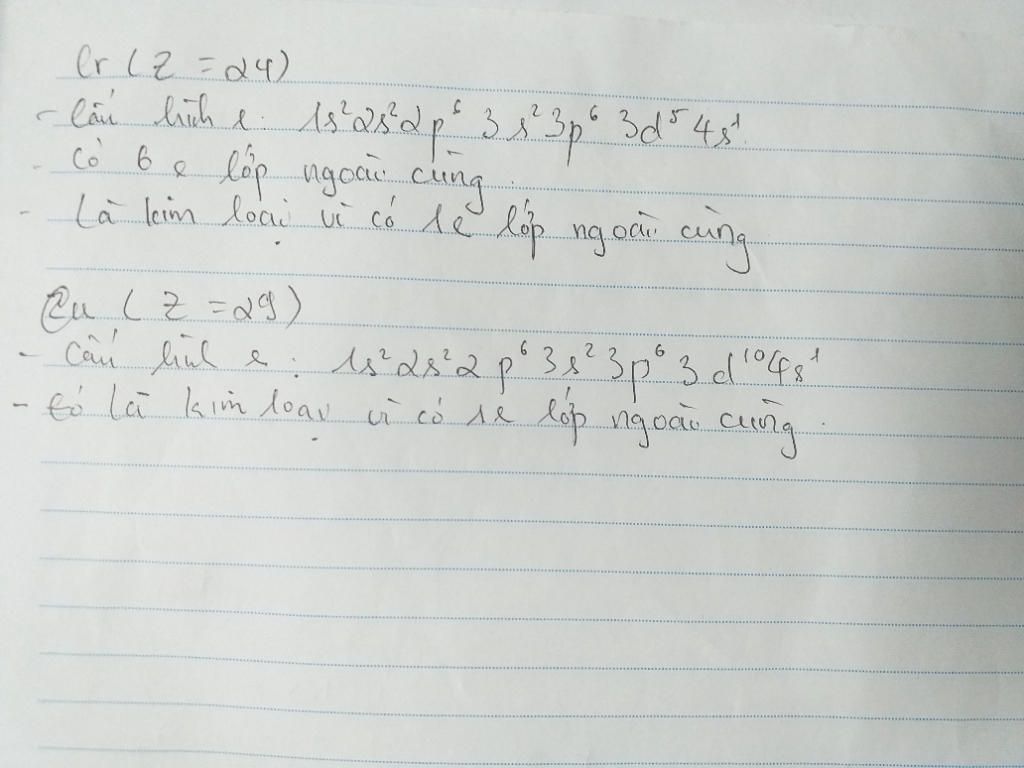 Cr ( Z = 24)
- Cấu hình e: 1s²2s²2p⁶ 3s² 3p⁶ 3d⁵ 4s¹.
- Có 6 e lớp ngoài cùng.
- Là kim loại vì có 1e lớp ngoài cùng
Cu ( Z = 29)
- Cấu hình e : 1s² 2s² 2p⁶ 3s² 3p⁶ 3d¹⁰ 4s¹
- Là kim loại vì có 1e lớp ngoài cùng.